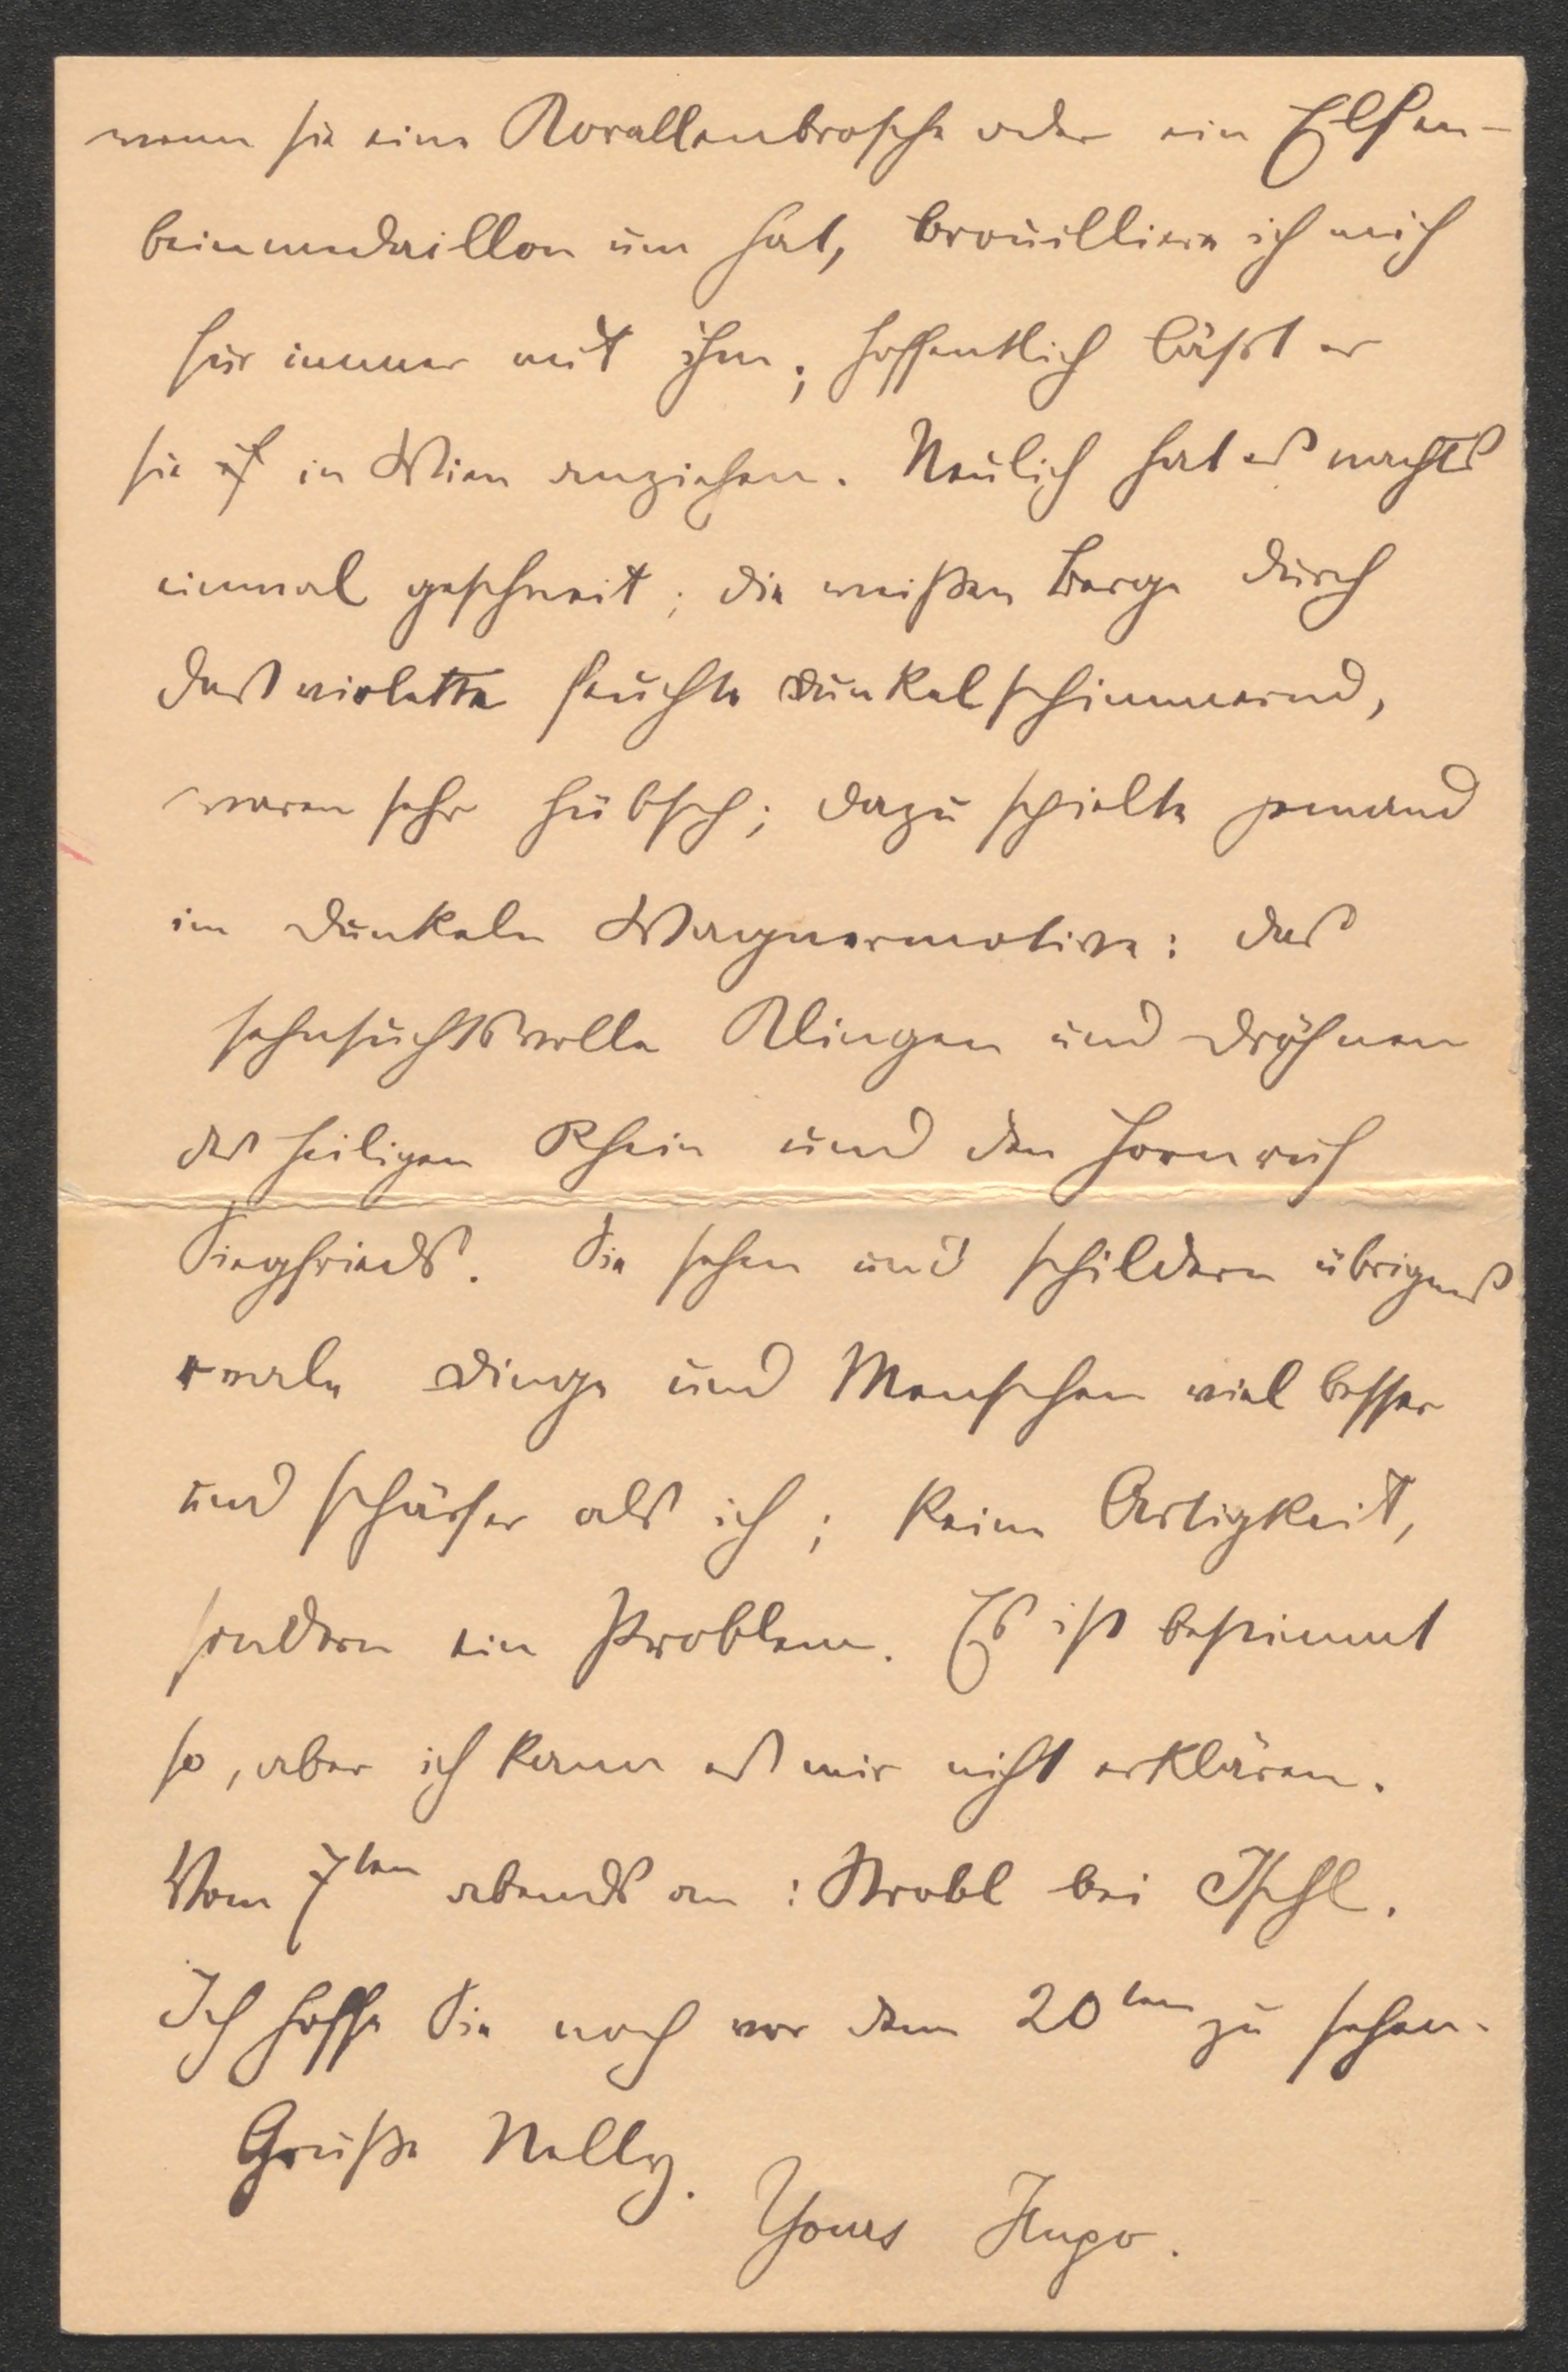 wenn sie eine Korallenbrosche oder ein Elfen-
beinmedaillon um hat, brouilliere ich mich
für immer mit ihm; hoffentlich läßt er
sie in Wien anziehen. Neulich hat es nachts
einmal geschneit; die weißen Berge durch
das violette feuchte Dunkel schimmernd,
waren sehr hübsch; dazu spielte jemand
im Dunkeln Wagnermotive: das
sehnsuchtsvolle Klingen und Dröhnen
des heiligen Rhein und den Hornruf
Siegfrieds. Sie sehen und schildern übrigens
reale Dinge und Menschen viel besser
und schärfer als ich; keine Artigkeit,
sondern ein Problem. Es ist bestimmt
so, aber ich kann es mir nicht erklären.
Vom 7ten abends an: Strobl bei Ischl.
Ich hoffe Sie noch vor dem 20ten zu sehen.
Grüße Nelly.
Yours Hugo.